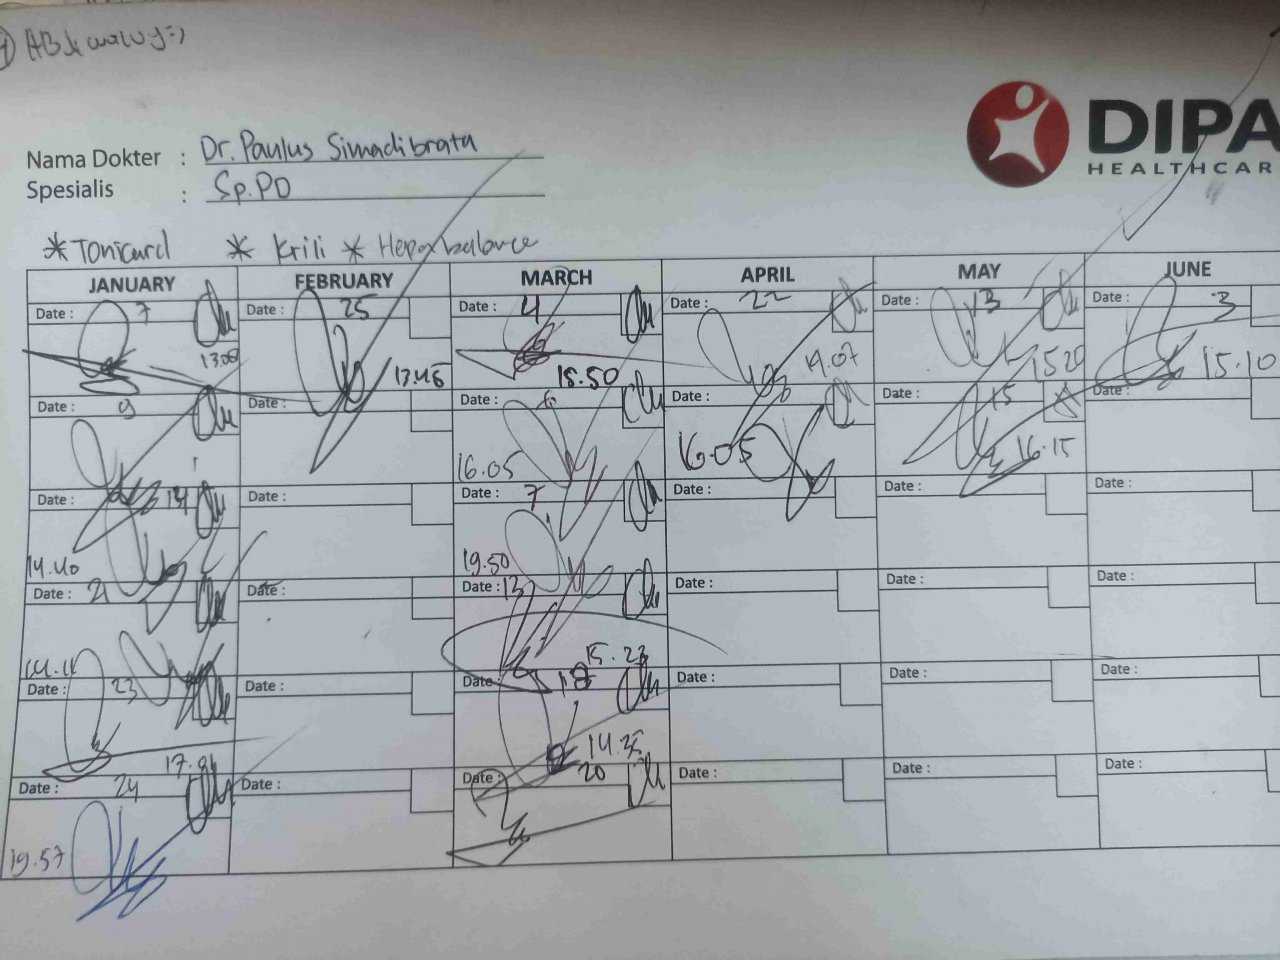 DIPA
HEALTHCAR
Nama Dokter : Dr. Paulus Simadibrata
Spesialis : Sp.PD
* Tonicard * Krili * Hepabalance
JANUARY FEBRUARY MARCH APRIL MAY JUNE
Date : 7 Date : 25 Date : 4 Date : 22 Date : 13 3
13.00 13.45 18.50 19.07 15 20 15.10
Date : 9 Date : Date : 6 Date : Date : 15 Date :
16.05 16.05 16.15
Date : 14 Date : Date : 7 Date : Date : Date :
14.40 19.50
Date : 21 Date : Date : 13 Date : Date : Date :
14.11 15.23
Date : 23 Date : Date : 18 Date : Date : Date :
14.35
Date : 24 Date : Date : 20 Date : Date : Date :
19.57